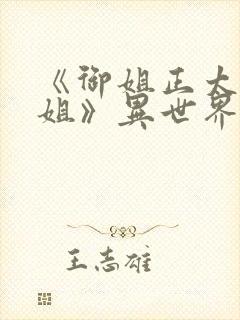 《御姐正大
姐》異世界
王志雄